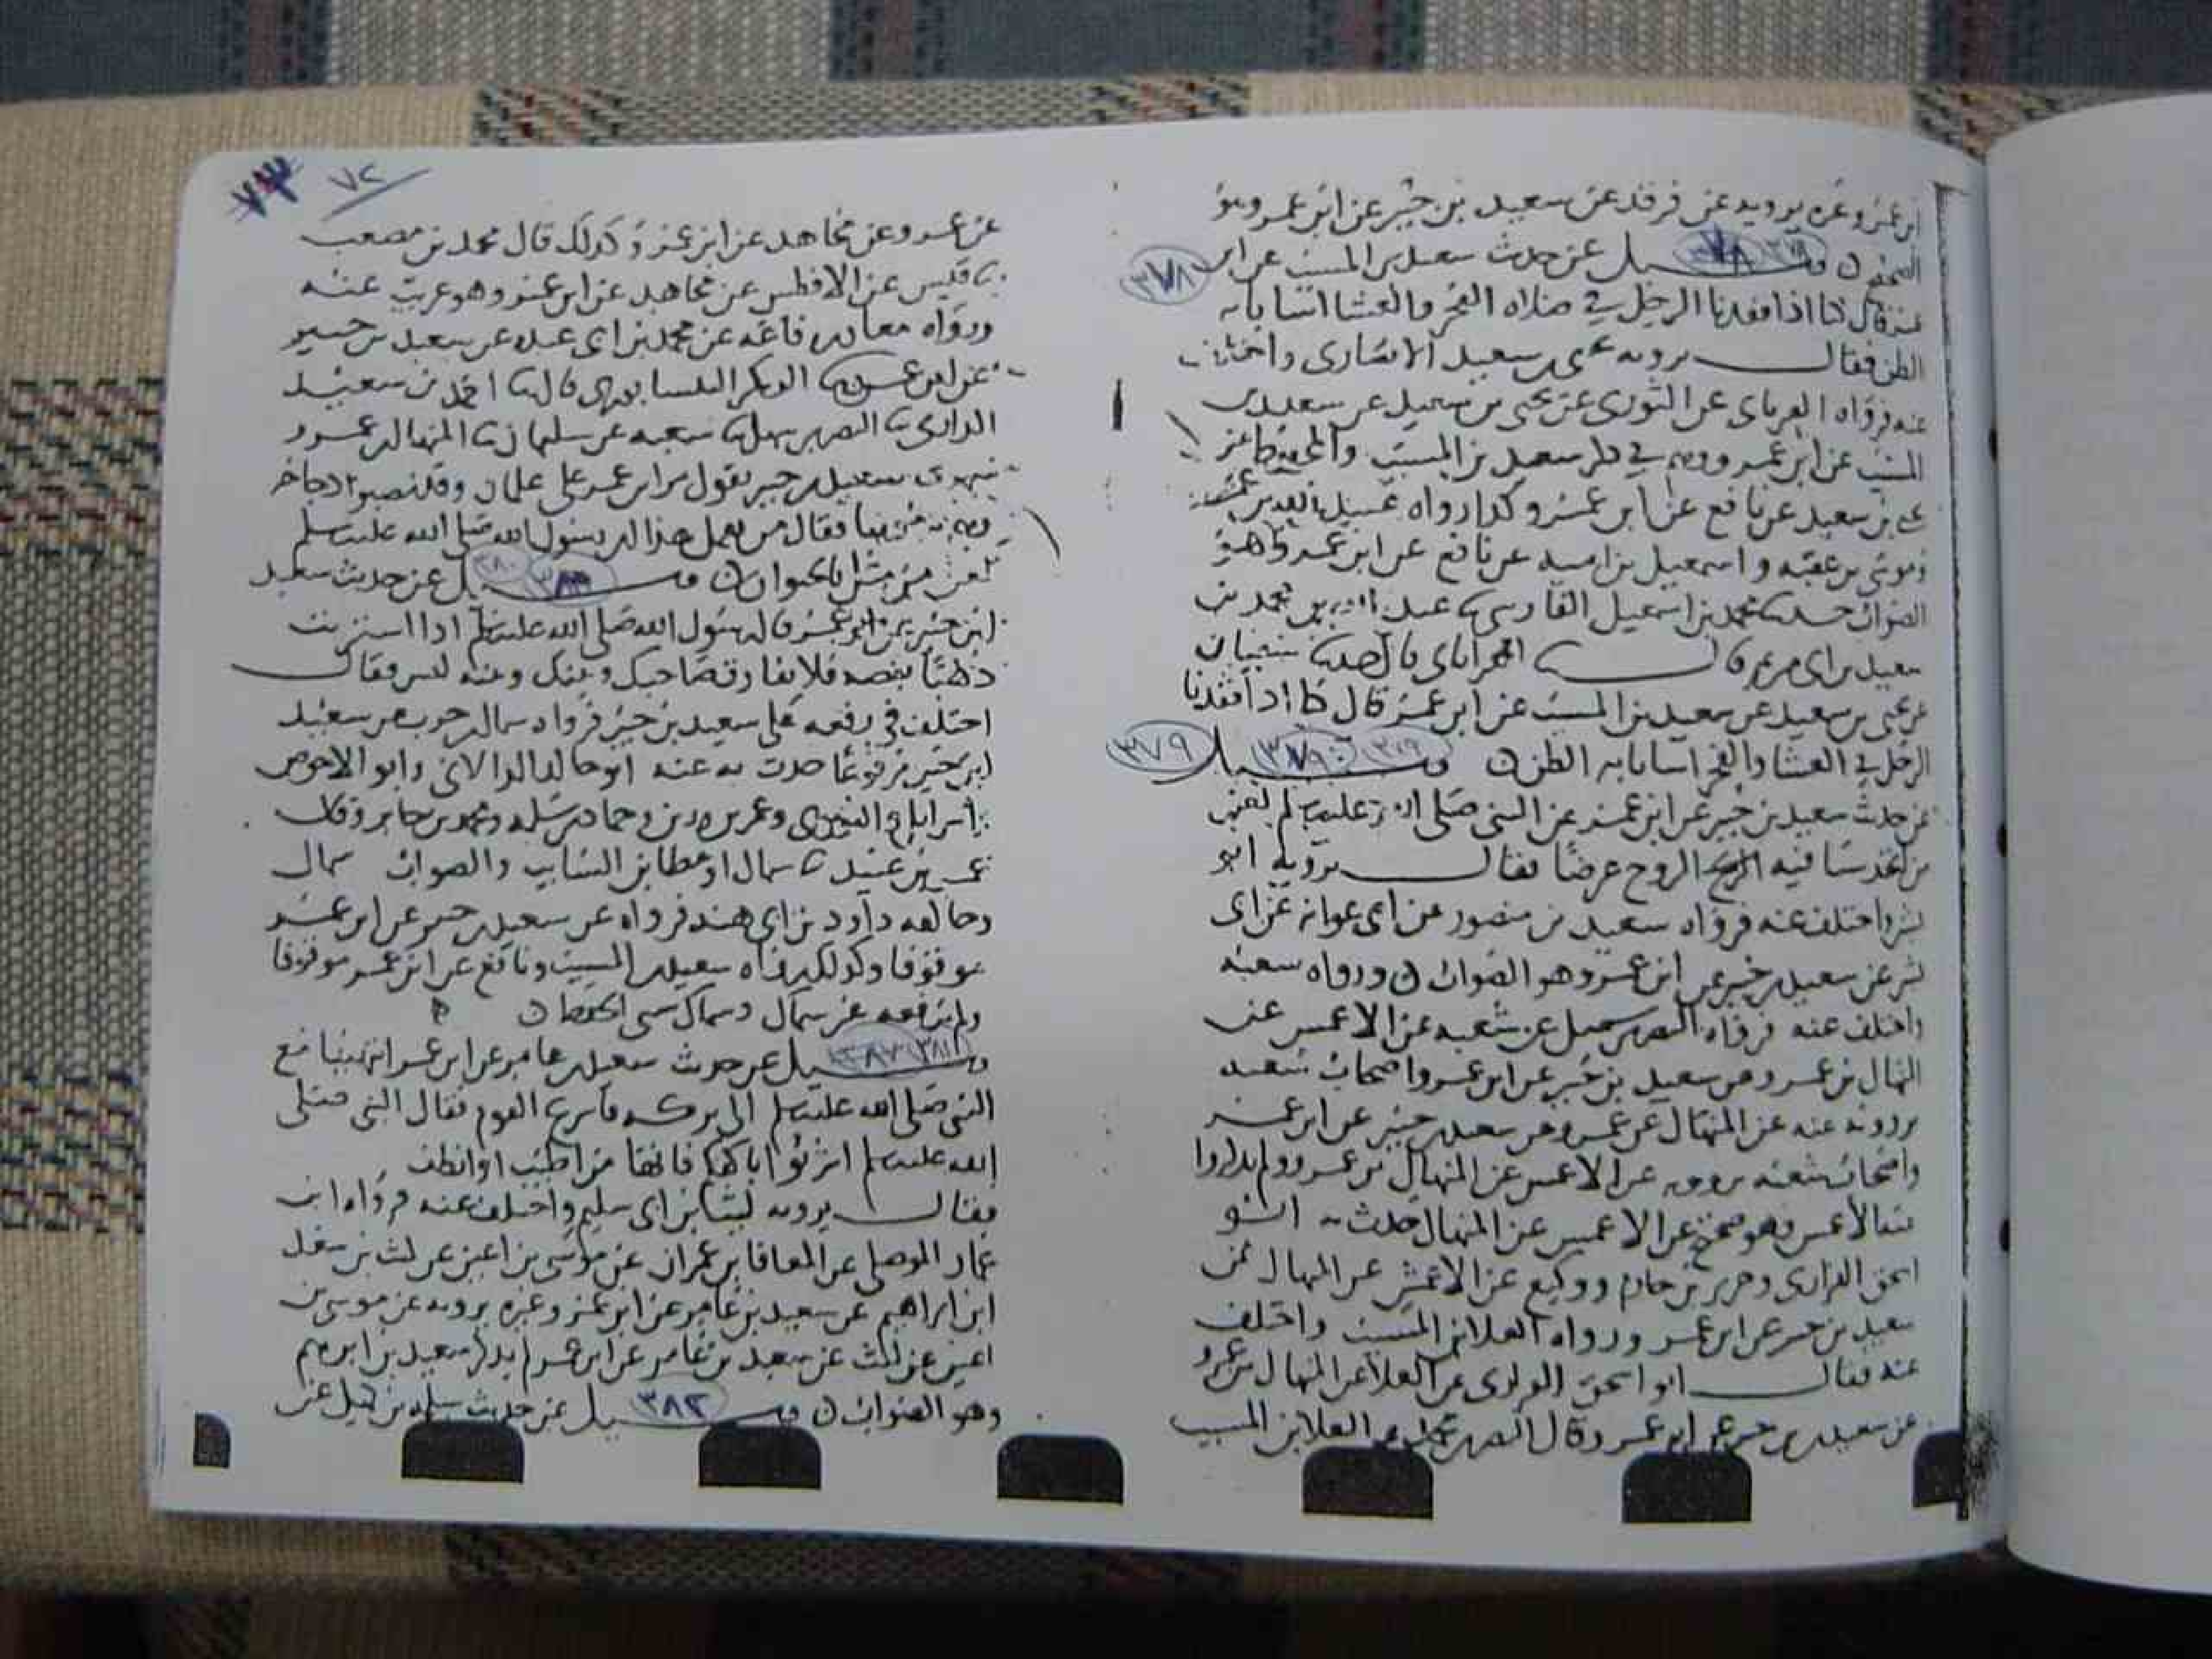 ابن عمر وغيره يرويه عن فرقد عن سعيد بن جبير عن ابن عمر وهو
الصحيح ٥ وسيل عن حديث سعيد بن المسيب عن ابن
٣٧٨
عمر قال كنا اذا فقدنا الرجل في صلاه الفجر والعشا اسانا به
الظن فقال يرويه يحيى بن سعيد الانصارى واختلف
عنه فرواه الفريابى عن الثورى عن يحيى بن سعيد عن سعيد بن
المسيب عن ابن عمر ووهم في ذكر سعيد بن المسيب والمحفوظ عن
يحيى بن سعيد عن نافع عن ابن عمر وكذا رواه عبيد الله بن عمر
وموسى بن عقبه واسمعيل بن اميه عن نافع عن ابن عمر وهو
الصواب حدثنا محمد بن اسمعيل الفارسى ثنا عبد الله بن محمد بن
سعيد بن ابى مريم قال ثنا الفريابى قال حدثنا سفيان
عن يحيى بن سعيد عن سعيد بن المسيب عن ابن عمر قال كنا اذا فقدنا
الرجل في العشا والفجر اسانا به الظن ٥ وسيل
٣٧٩
عن حديث سعيد بن جبير عن ابن عمر عن النبى صلى الله عليه وسلم لعن
من اتخذ شيا فيه الروح غرضا فقال يرويه ابو
بشر واختلف عنه فرواه سعيد بن منصور عن ابى عوانه عن ابى
بشر عن سعيد بن جبير عن ابن عمر وهو الصواب ٥ ورواه شعبه
واختلف عنه فرواه النضر بن شميل عن شعبه عن الاعمش عن
المنهال بن عمرو عن سعيد بن جبير عن ابن عمر واصحاب شعبه
يروونه عنه عن المنهال بن عمرو عن سعيد بن جبير عن ابن عمر
واصحاب شعبه يروونه عن الاعمش عن المنهال بن عمرو ولم يذكروا
الاعمش وهو صحيح عن الاعمش عن المنهال حدث به ابو
اسحق الفزارى وجرير بن حازم ووكيع عن الاعمش عن المنهال عن
سعيد بن جبير عن ابن عمر ورواه العلا بن المسيب واختلف
عنه فقال ابو اسحق الفزارى عن العلا عن المنهال بن عمرو
عن سعيد بن جبير عن ابن عمر وقال النضر بن محمد عن العلا بن المسيب
٧٢
عن عمرو عن مجاهد عن ابن عمر وكذلك قال محمد بن مصعب
ثنا قيس عن الافطس عن مجاهد عن ابن عمر وهو غريب عنه
ورواه معان بن رفاعه عن محمد بن ابى عبله عن سعيد بن جبير
عن ابن عمر ثنا ابو بكر النيسابورى قال ثنا احمد بن سعيد
الدارمى ثنا النضر بن شميل ثنا شعبه عن سليمان ثنا المنهال بن عمرو
سعيد بن جبير يقول مر ابن عمر على غلمان وقد نصبوا دجاجه
يرمونها فقال من يعمل هذا ان رسول الله صلى الله عليه وسلم
لعن من مثل بالحيوان ٥ وسيل عن حديث سعيد
ابن جبير عن ابن عمر قال رسول الله صلى الله عليه وسلم اذا اشتريت
ذهبا بفضه فلا تفارق صاحبك وبينك وبينه لبس فقال
اختلف في رفعه على سعيد بن جبير فرواه سماك بن حرب عن سعيد
ابن جبير مرفوعا حدث به عنه ابو خالد الدالانى وابو الاحوص
واسرايل والثورى وعمر بن رزين وحماد بن سلمه ومحمد بن جابر وقال
عمر بن عبيد ثنا سماك او عطا بن السايب والصواب سماك
وخالفه داود بن ابى هند فرواه عن سعيد بن جبير عن ابن عمر
موقوفا وكذلك رواه سعيد بن المسيب ونافع عن ابن عمر موقوفا
ولم يرفعه غير سماك وسماك سى الحفظ ٥
وسيل ٣٨١ عن حديث سعيد بن عامر عن ابن عمر انتهينا مع
النبى صلى الله عليه وسلم الى بركه فاسرع القوم فقال النبى صلى
الله عليه وسلم اشربوا باكفكم فانها من اطيب او انظف
فقال يرويه ليث بن ابى سليم واختلف عنه فرواه ابن
عمار الموصلى عن المعافا بن عمران عن موسى بن اعين عن ليث بن سعد
ابن ابراهيم عن سعيد بن عامر عن ابن عمر وغيره يرويه عن موسى بن
اعين عن ليث عن سعيد بن عامر عن ابن عمر لم يذكر سعيد بن ابراهيم
وهو الصواب ٥ وسيل ٣٨٢ عن حديث سلمه بن كهيل عن